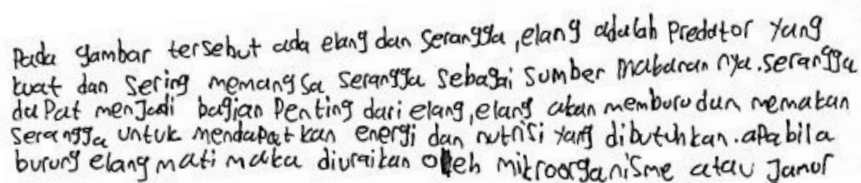 Pada gambar tersebut ada elang dan serangga, elang adalah Predator yang
kuat dan sering memangsa serangga sebagai sumber makanan nya. serangga
dapat menjadi bagian Penting dari elang, elang akan memburu dan memakan
serangga untuk mendapat kan energi dan nutrisi yang dibutuhkan. apabila
burung elang mati maka diuraikan oleh mikroorganisme atau Jamur